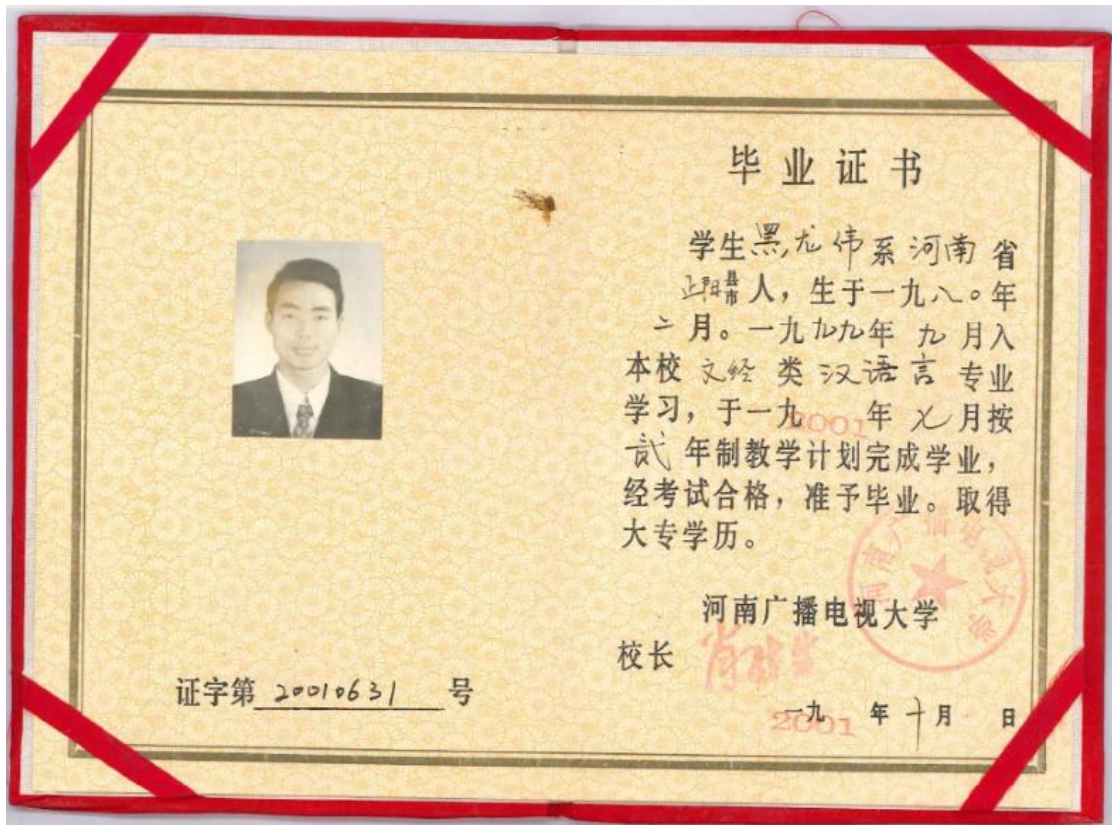 毕业证书
学生黑龙伟系河南省
正阳县市人，生于一九八〇年
二月。一九九九年九月入
本校文经类汉语言专业
学习，于一九2001年七月按
贰年制教学计划完成学业，
经考试合格，准予毕业。取得
大专学历。
河南广播电视大学
校长
一九2001年十月 日
证字第20010631号
河南广播电视大学